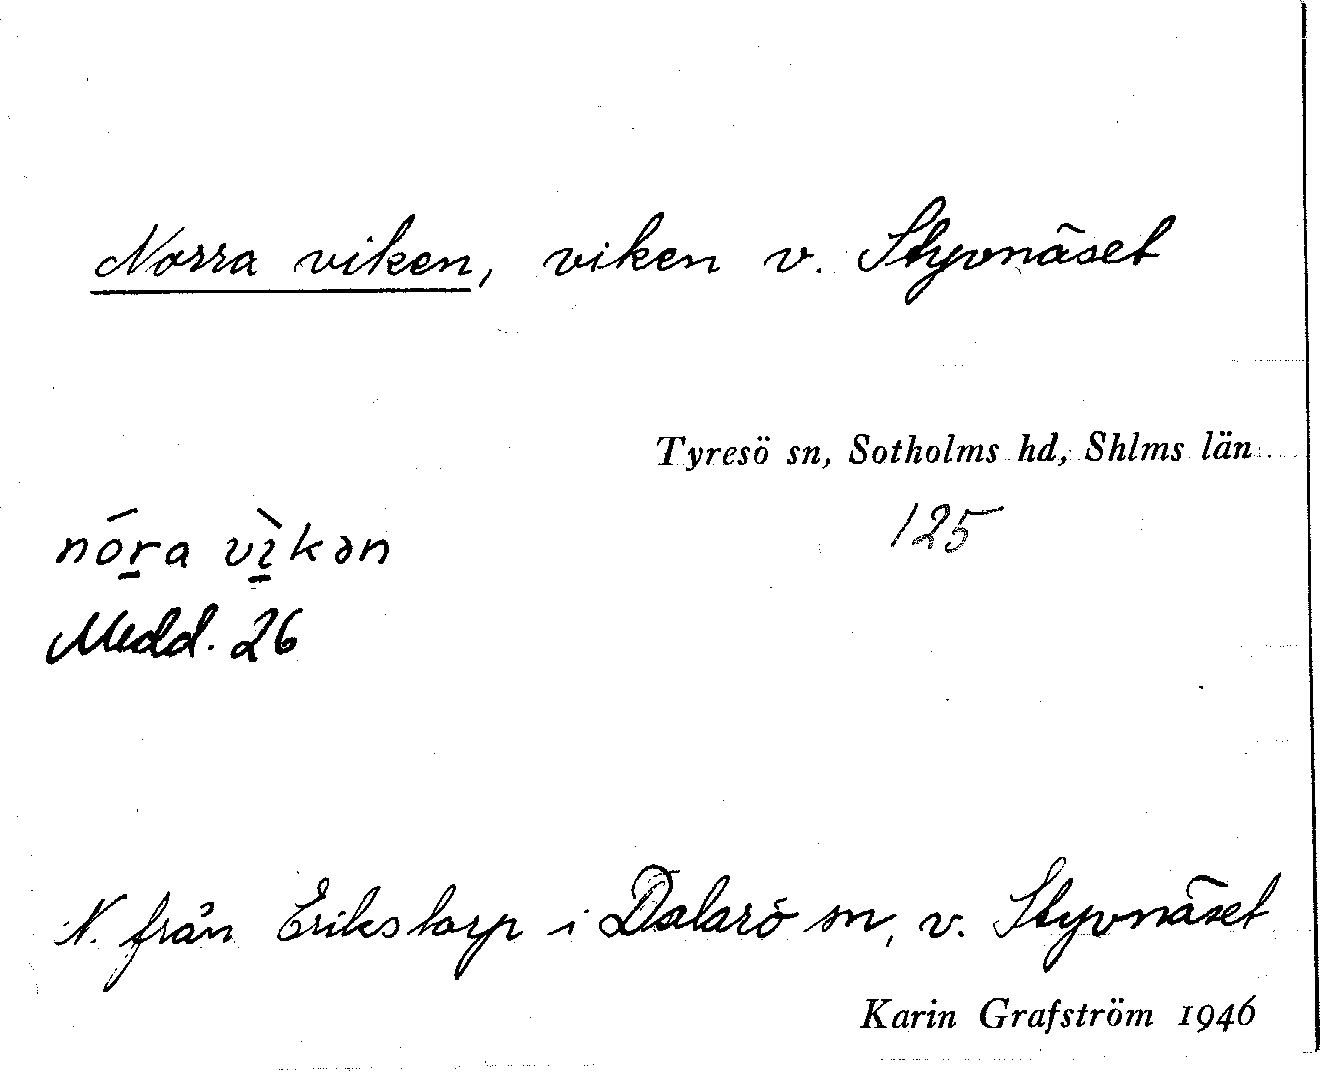 Norra viken, viken v. Styvnäset
Tyresö sn, Sotholms hd, Shlms län
125
nóra vìkən
Medd. 26
N. från Erikstorp i Dalarö sn, v. Styvnäset
Karin Grafström 1946